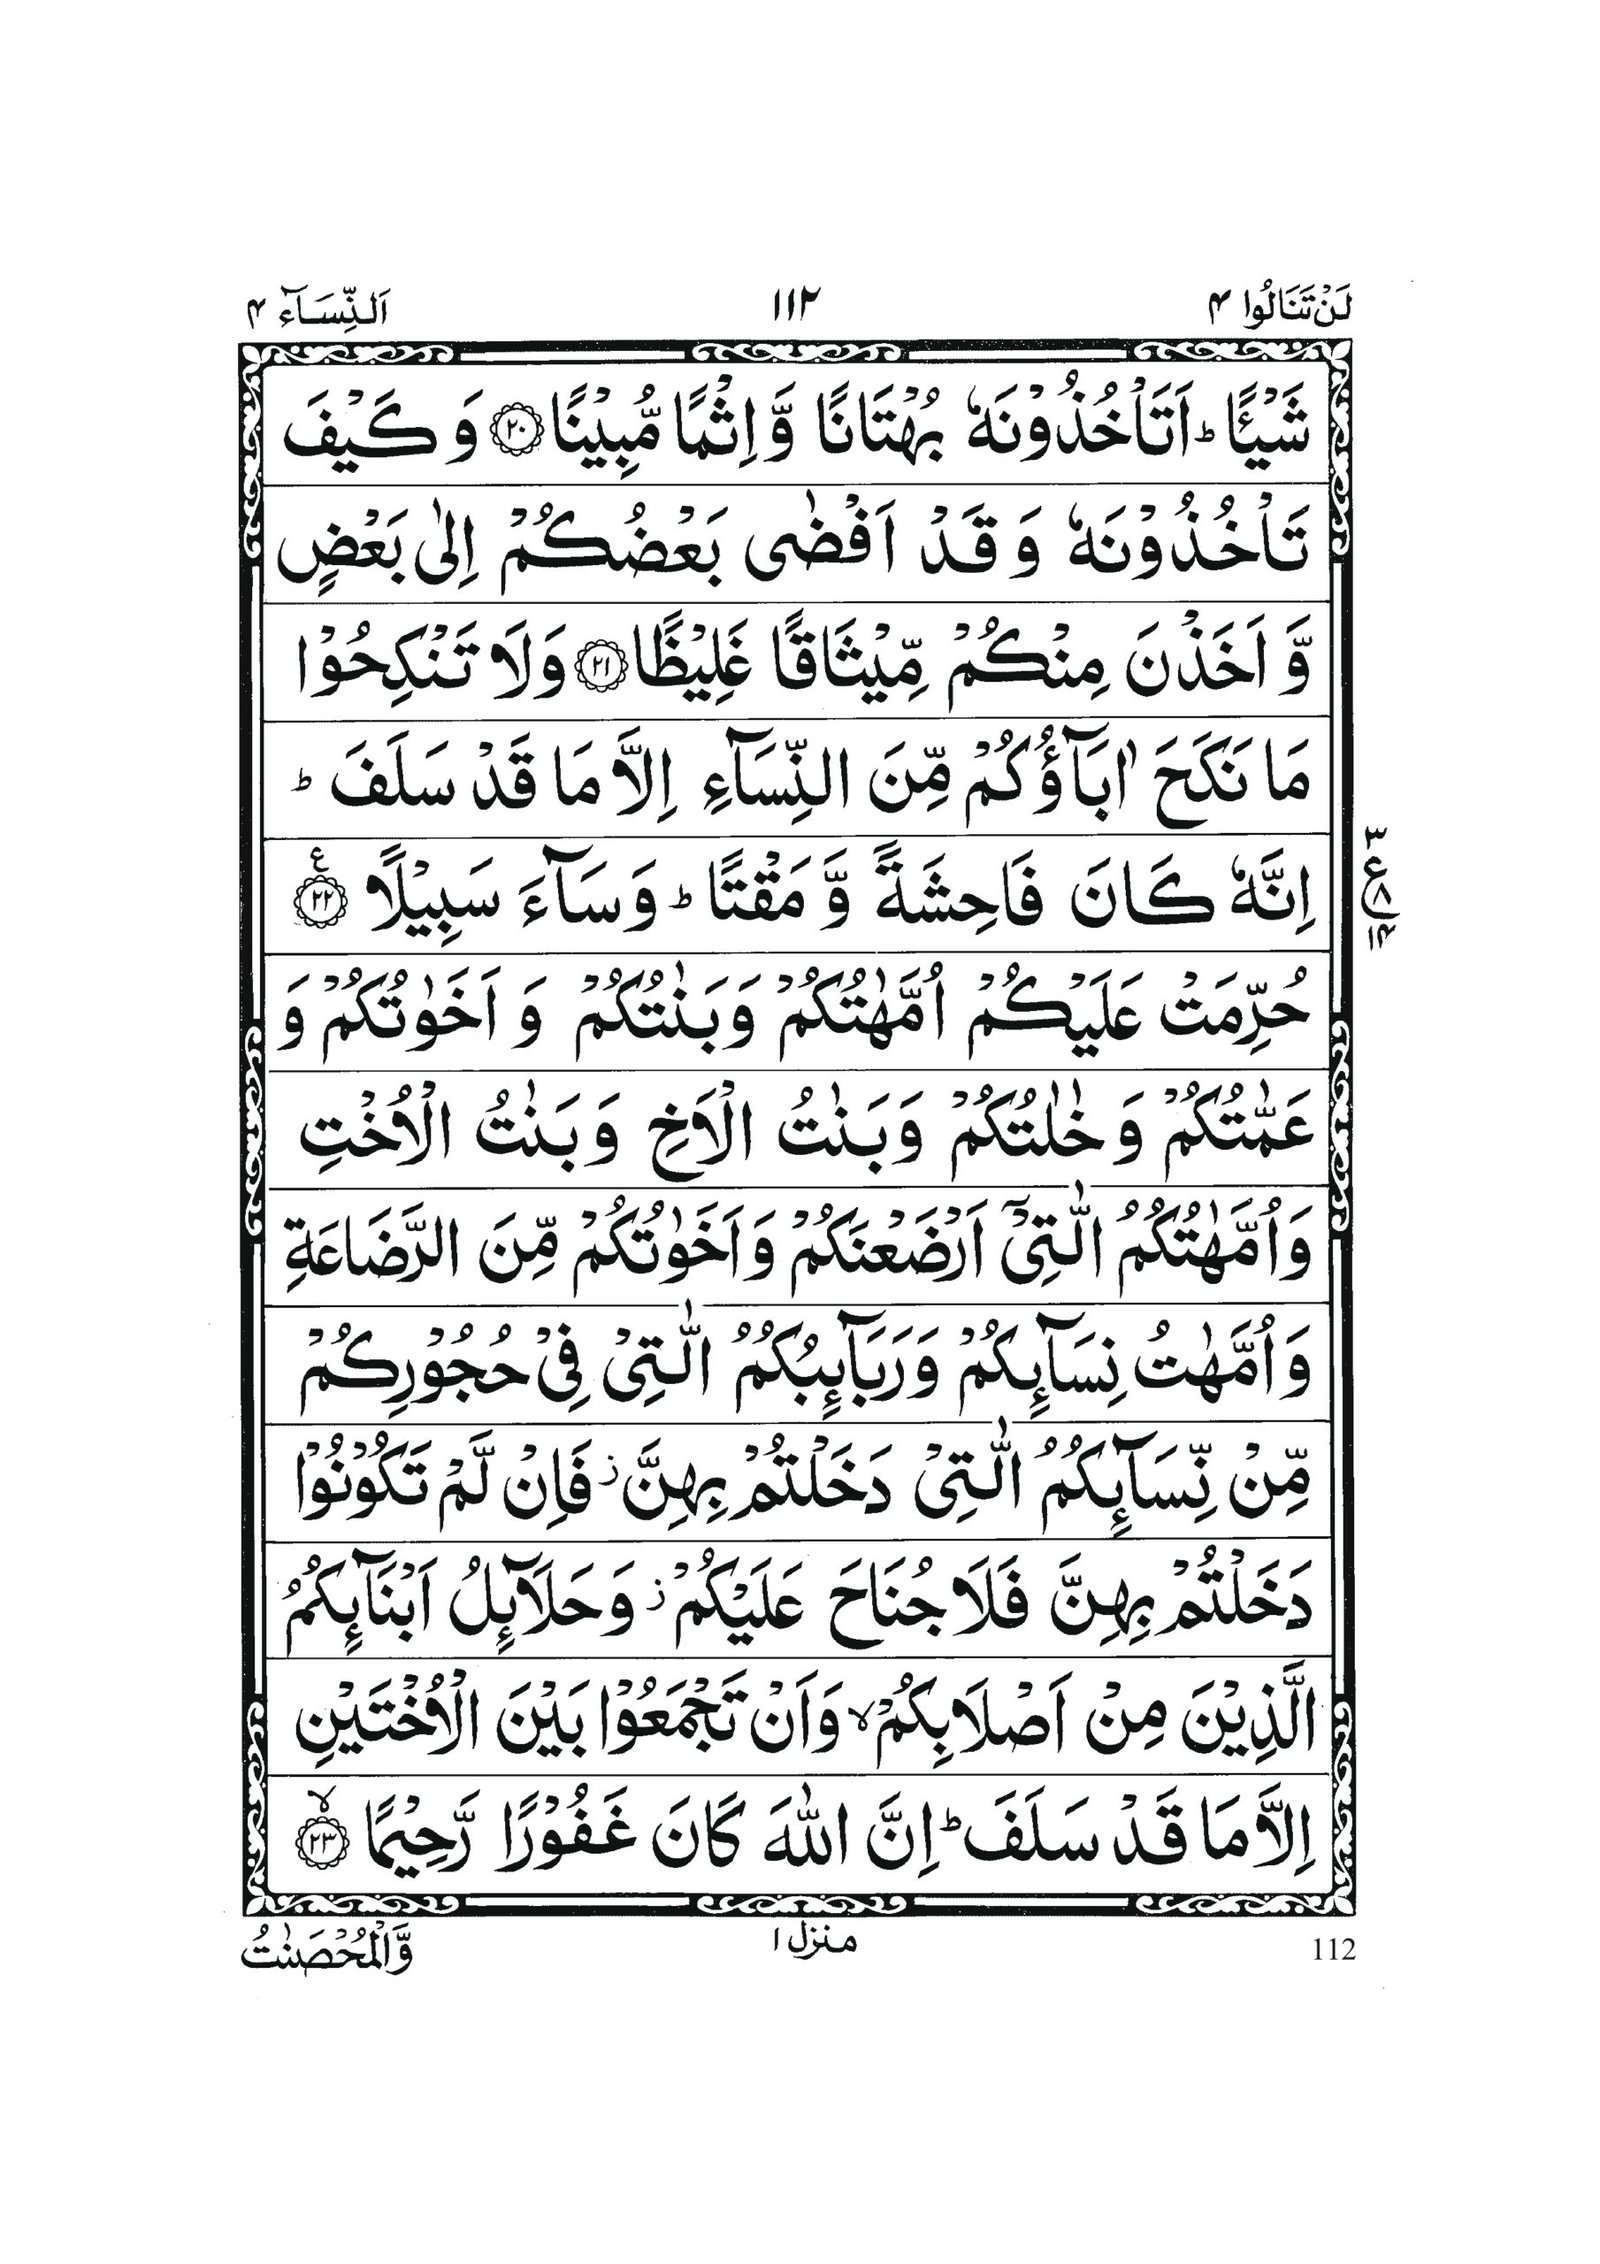 لَنْ تَنَالُوا ۴ ١١٢ اَلنِّسَآء ۴
شَيْـًٔا ؕ اَتَاْخُذُوْنَهٗ بُهْتَانًا وَّ اِثْمًا مُّبِيْنًا ۟۲۰ وَ كَيْفَ
تَاْخُذُوْنَهٗ وَ قَدْ اَفْضٰى بَعْضُكُمْ اِلٰى بَعْضٍ
وَّ اَخَذْنَ مِنْكُمْ مِّيْثَاقًا غَلِيْظًا ۟۲۱ وَلَا تَنْكِحُوْا
مَا نَكَحَ اٰبَآؤُكُمْ مِّنَ النِّسَآءِ اِلَّا مَا قَدْ سَلَفَ ؕ
اِنَّهٗ كَانَ فَاحِشَةً وَّ مَقْتًا ؕ وَ سَآءَ سَبِيْلًا ۟۲۲ ع
٣ ع ٨ ١٤
حُرِّمَتْ عَلَيْكُمْ اُمَّهٰتُكُمْ وَ بَنٰتُكُمْ وَ اَخَوٰتُكُمْ وَ
عَمّٰتُكُمْ وَ خٰلٰتُكُمْ وَ بَنٰتُ الْاَخِ وَ بَنٰتُ الْاُخْتِ
وَ اُمَّهٰتُكُمُ الّٰتِيْۤ اَرْضَعْنَكُمْ وَ اَخَوٰتُكُمْ مِّنَ الرَّضَاعَةِ
وَ اُمَّهٰتُ نِسَآىِٕكُمْ وَ رَبَآىِٕبُكُمُ الّٰتِيْ فِيْ حُجُوْرِكُمْ
مِّنْ نِّسَآىِٕكُمُ الّٰتِيْ دَخَلْتُمْ بِهِنَّ ؗ فَاِنْ لَّمْ تَكُوْنُوْا
دَخَلْتُمْ بِهِنَّ فَلَا جُنَاحَ عَلَيْكُمْ ؗ وَ حَلَآىِٕلُ اَبْنَآىِٕكُمُ
الَّذِيْنَ مِنْ اَصْلَابِكُمْ ۙ وَ اَنْ تَجْمَعُوْا بَيْنَ الْاُخْتَيْنِ
اِلَّا مَا قَدْ سَلَفَ ؕ اِنَّ اللّٰهَ كَانَ غَفُوْرًا رَّحِيْمًا ۟ۙ۲۳
112 منزل ١ وَّالْمُحْصَنٰتُ